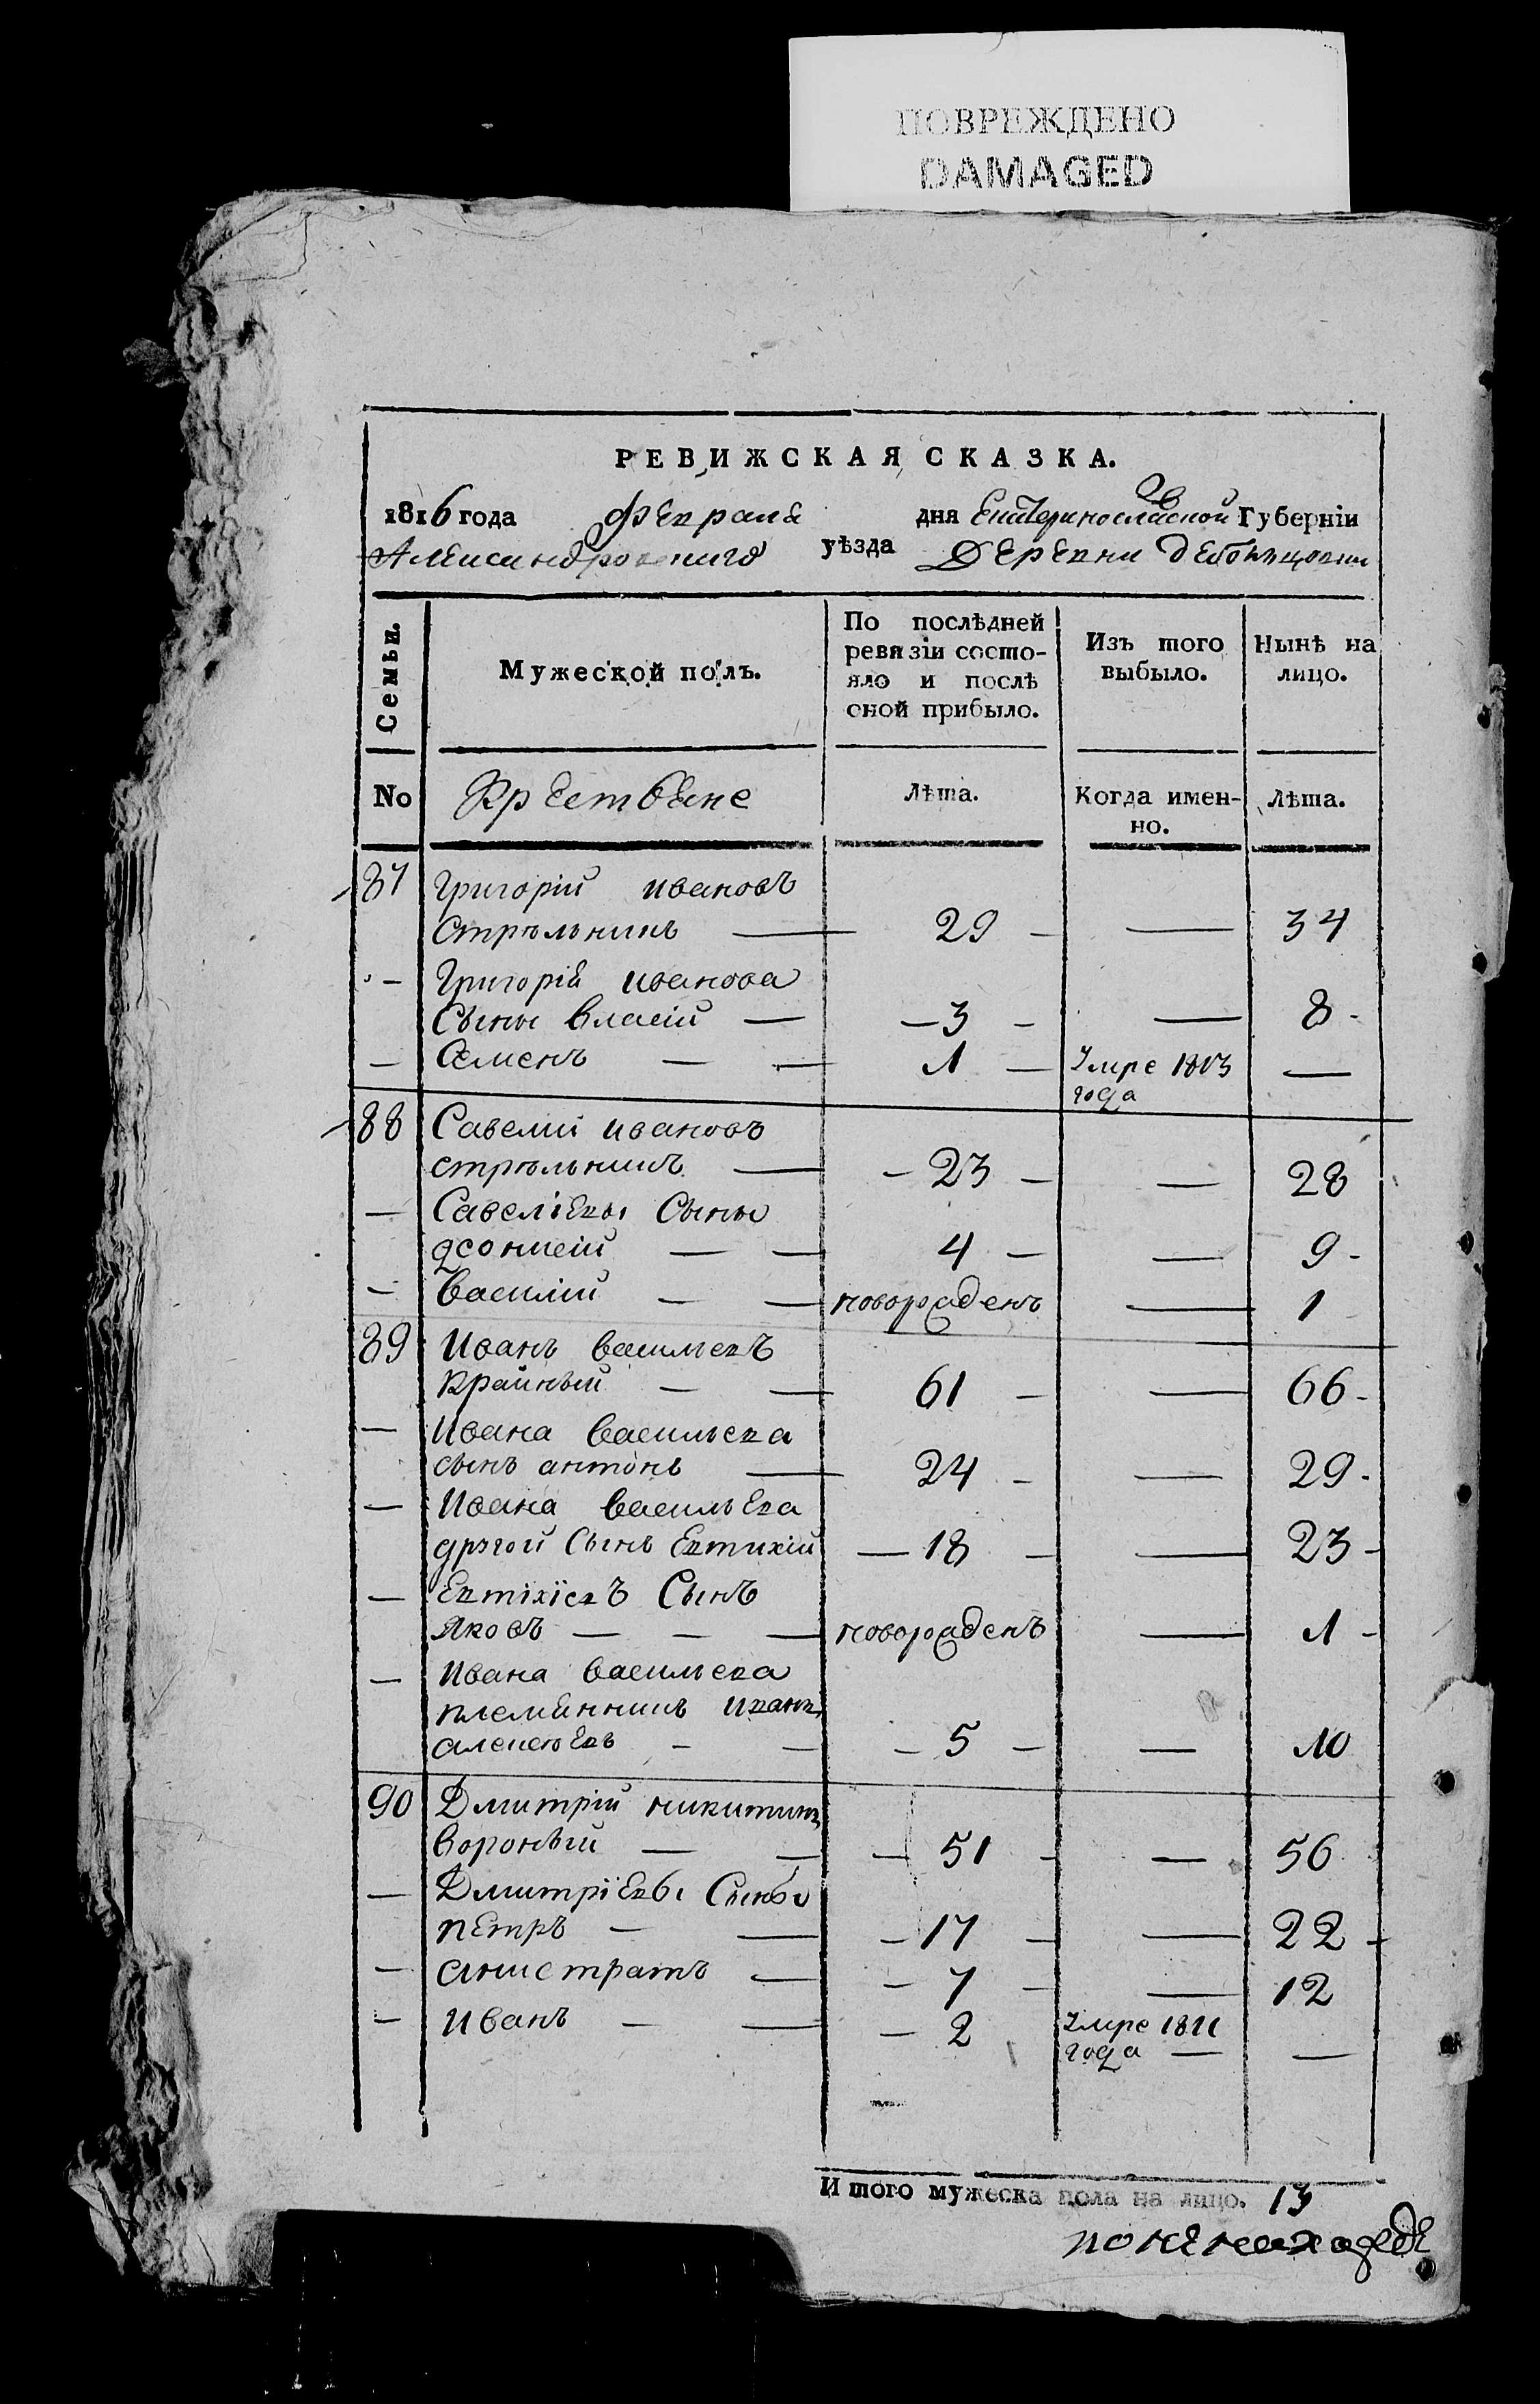 ПОВРЕЖДЕНО
DAMAGED
РЕВИЖСКАЯ СКАЗКА.
1816 года февраля дня Екатеринославской Губерніи
Александровского уѣзда Деревни
Семьи. Мужеской полъ. По послѣдней ревизіи состояло и послѣ оной прибыло. Изъ того выбыло. Нынѣ на лицо.
No Крестьяне Лѣта. Когда именно. Лѣта.
87 Григорій ивановъ
Стрѣльникъ — 29 — — 34
— Григорія иванова
Сыны власій — — 3 — — 8 -
— Семенъ — — 1 — Умре 1813 года —
88 Савелій ивановъ
стрѣльникъ — — 23 — — 28
— Савеліевы Сыны
— — 4 — — 9 -
— Василій — — новорожденъ — 1
89 Иванъ васильевъ
крайный — — 61 — — 66 -
— Ивана васильева
сынъ антонъ — 24 — — 29 -
— Ивана васильева
другой Сынъ Евтихій — 18 — — 23 -
— Евтіхіевъ Сынъ
яковъ — — — новорожденъ — 1 -
— Ивана васильева
племянникъ иванъ
алексѣевъ — — — 5 — — 10
90 Дмитрій никитинъ
вороный — — — 51 — — 56
— Дмитріевы Сыны
петръ — — — 17 — — 22 -
— анистратъ — — 7 — — 12
— иванъ — — — 2 Умре 1811 года — —
Итого мужеска пола на лицо. 13